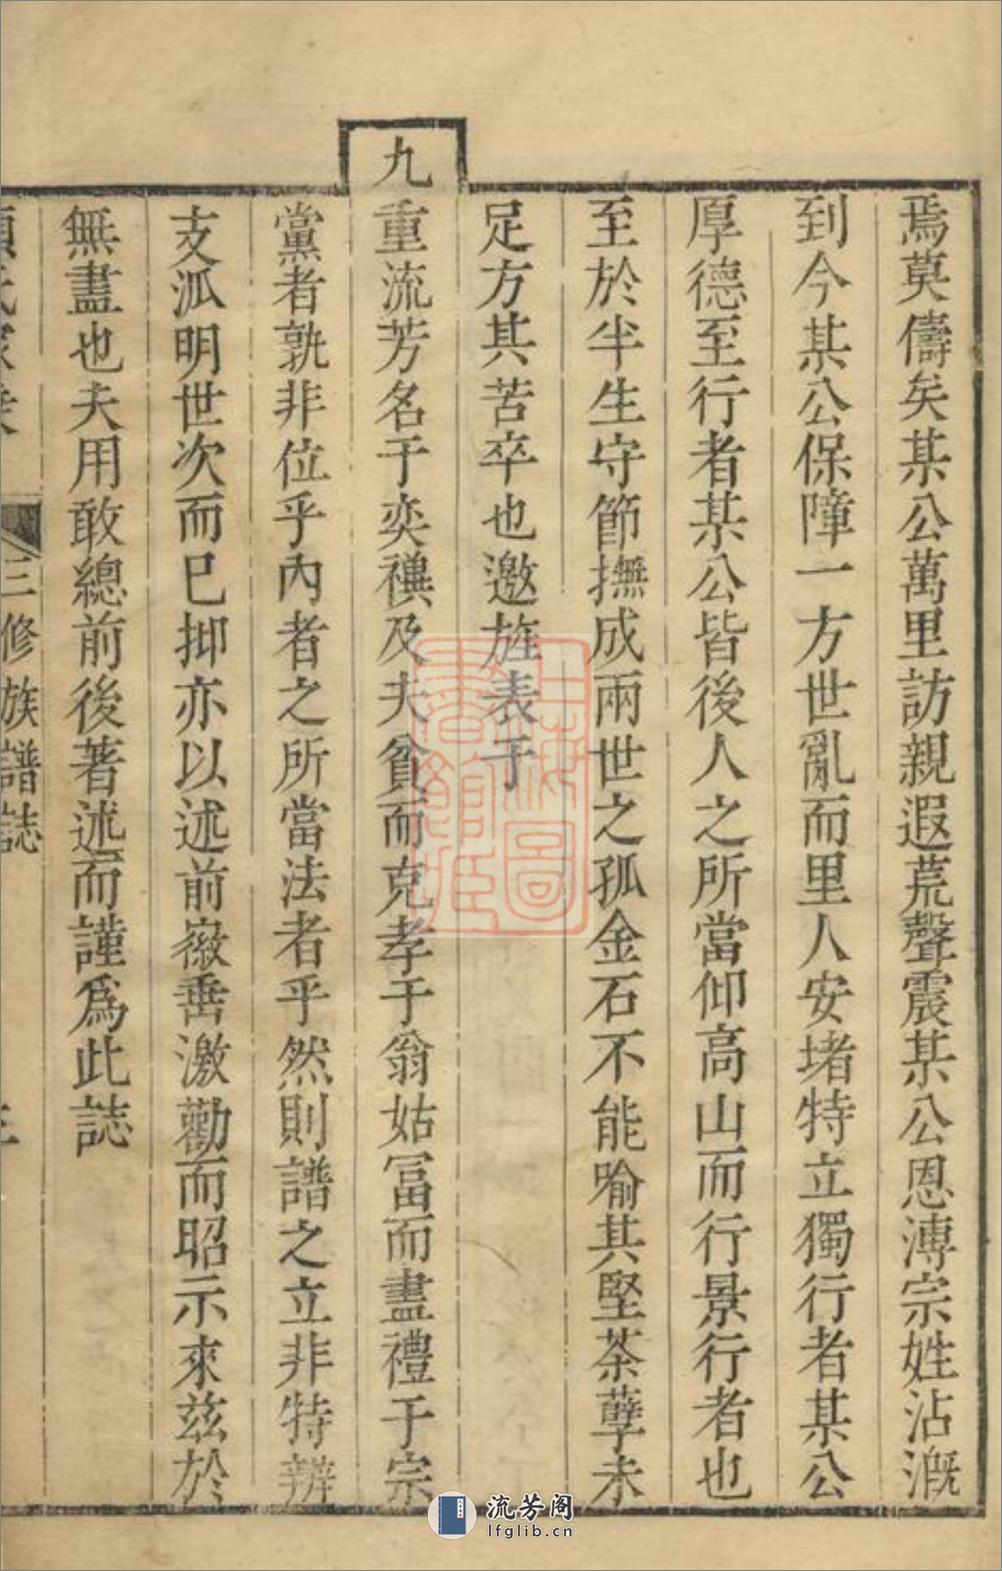 焉莫儔矣某公萬里訪親遐荒聲震某公恩溥宗姓沾溉
到今某公保障一方世亂而里人安堵特立獨行者某公
厚德至行者某公皆後人之所當仰高山而行景行者也
至於半生守節撫成兩世之孤金石不能喻其堅荼孽未
足方其苦卒也邀旌表于
九重流芳名于奕禩及夫貧而克孝于翁姑冨而盡禮于宗
黨者孰非位乎內者之所當法者乎然則譜之立非特辨
支泒明世次而已抑亦以述前徽垂激勸而昭示來玆於
無盡也夫用敢總前後著述而謹爲此誌
三修族譜誌
上海圖書館藏
流芳阁
lfglib.cn